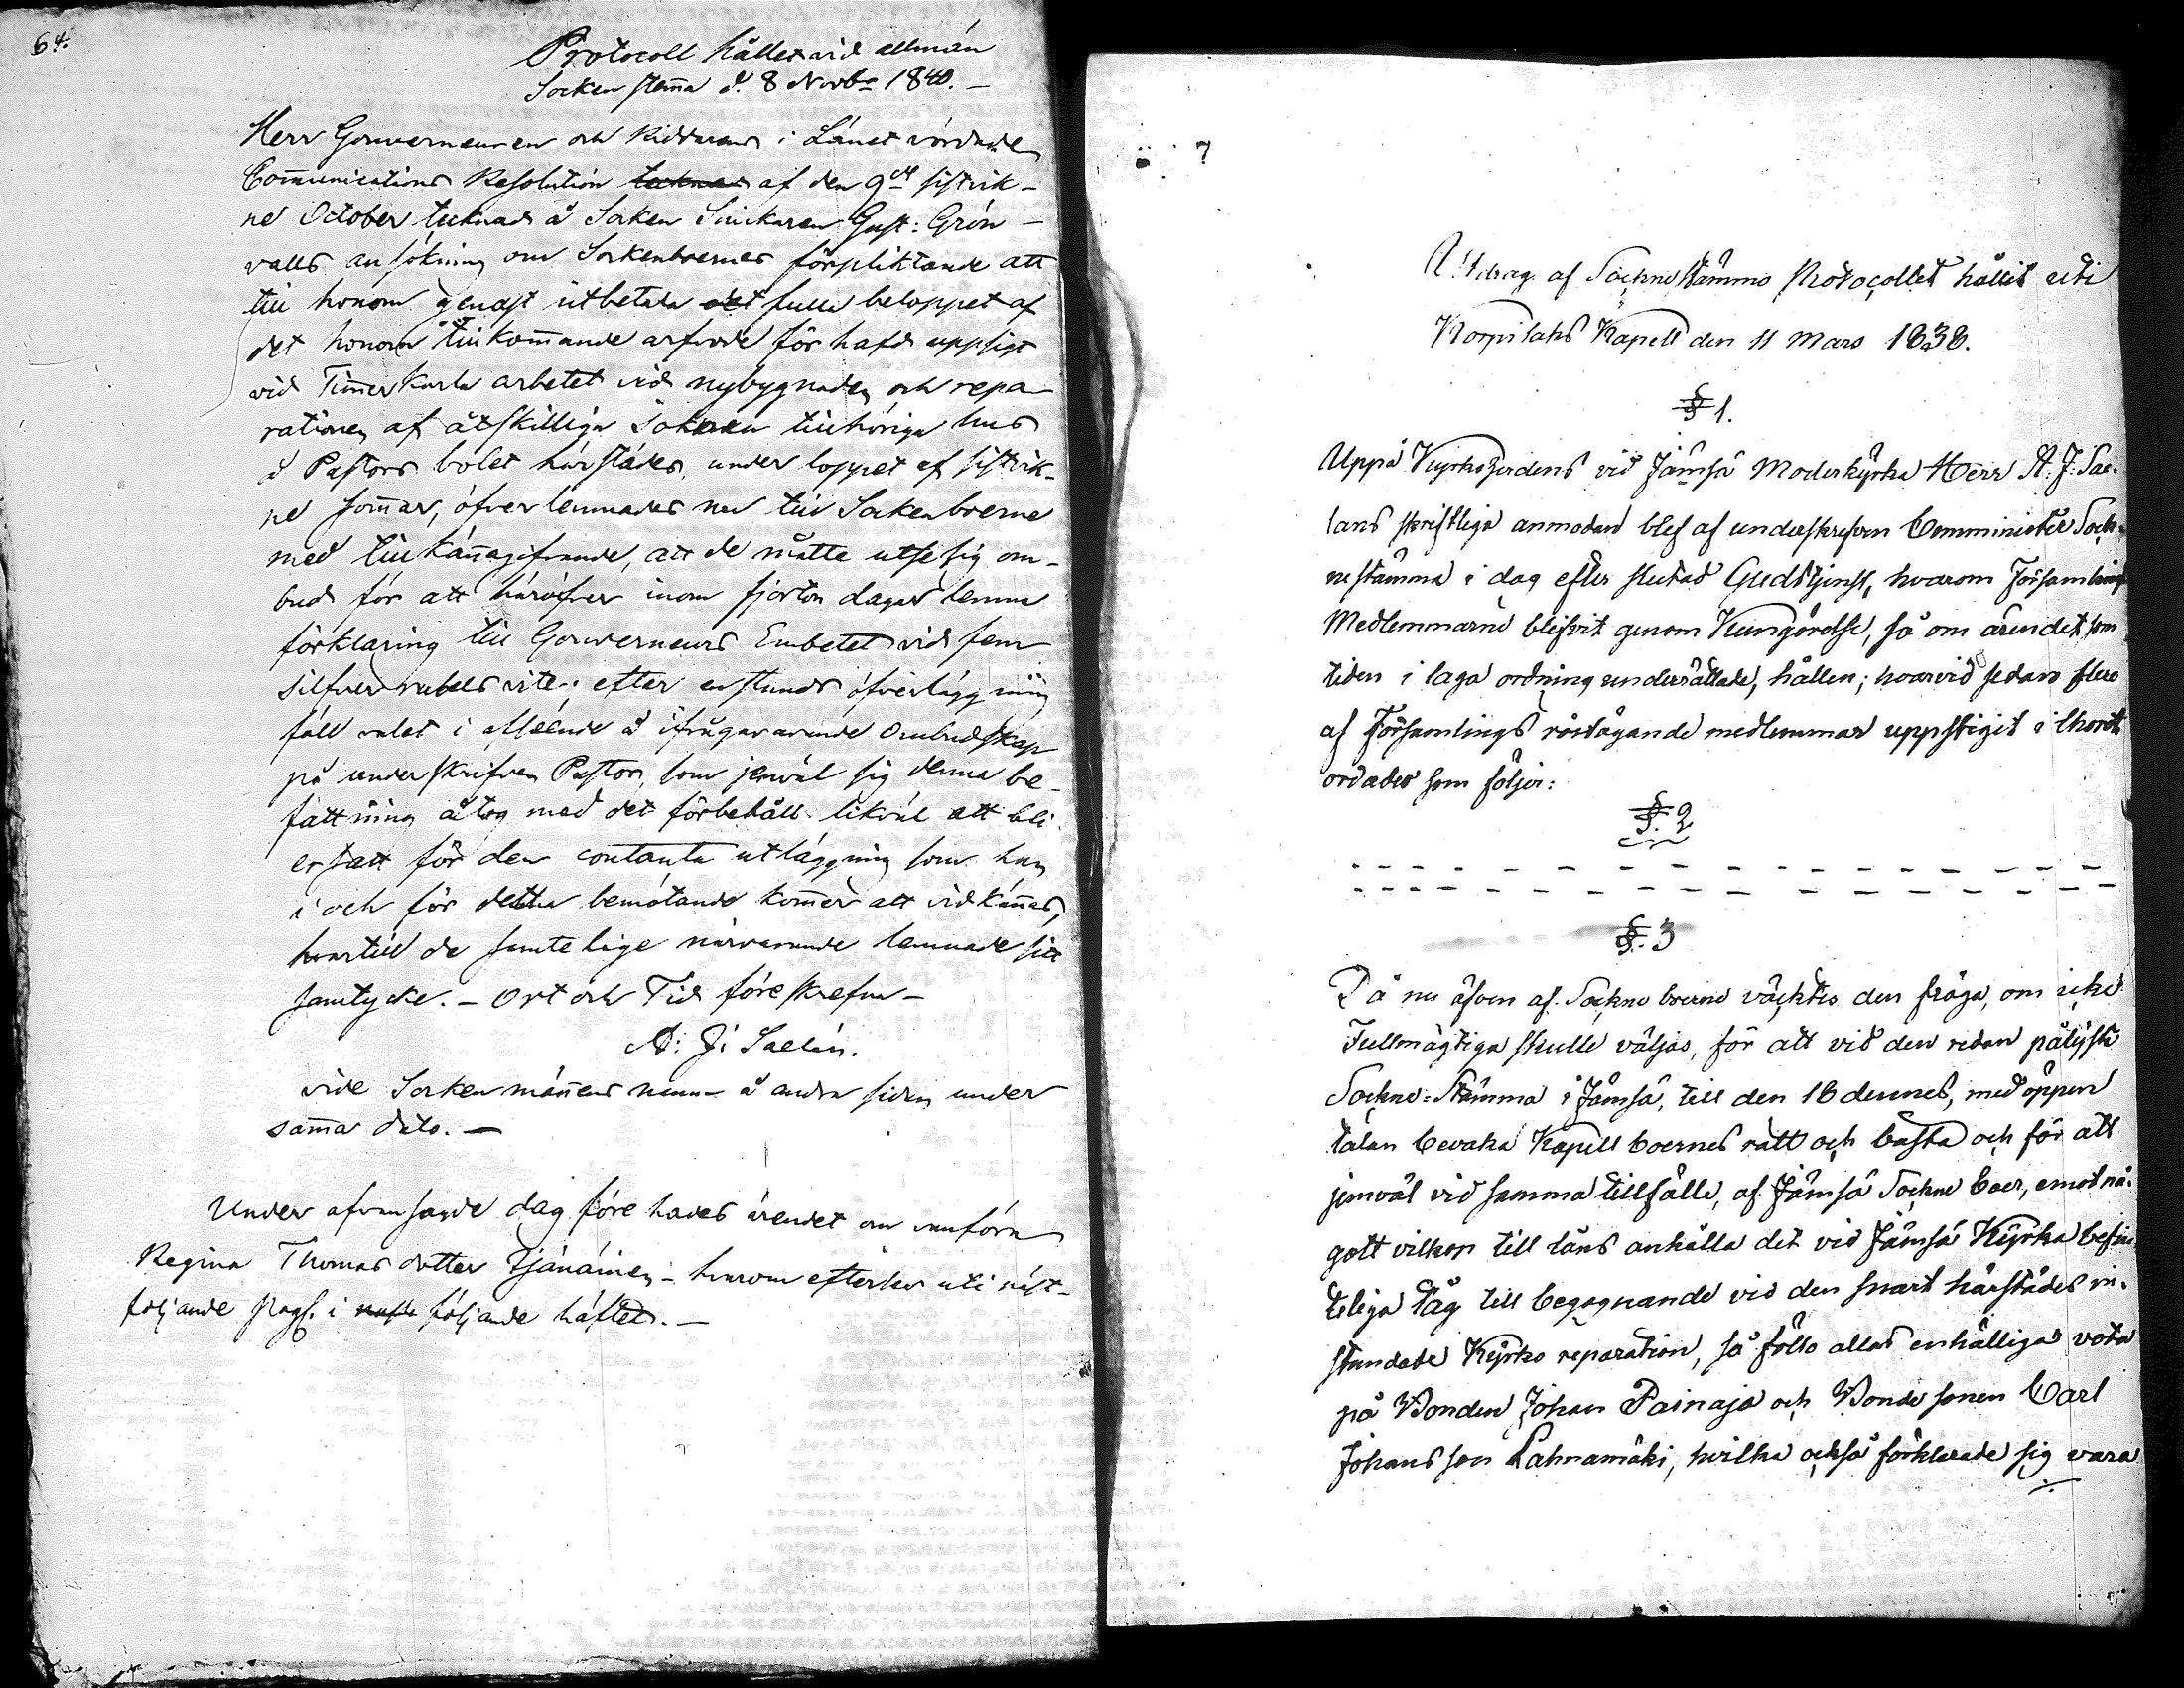 64.
Protocoll hållet vid allmän
Sockenstem̃a d. 8 Novbr 1840. –
Herr Gouverneuren och Riddarens i Länet vördade
Com̃unications Resolution tecknad af den 9de sistvik-
ne October tecknad å Socken Snickaren Gust: Grön-
valls ansökning om Sockenboernes förpliktande att
till honom genast utbetala det fulla beloppet af
det honom tillkom̃ande arfvode för hafd uppsigt
vid Tim̃erkarla arbetet vid nybygnaden och repa-
rationen af åtskilliga Socknen tillhöriga hus
å Pastors bolet härstädes, under loppet af sistvik-
ne som̃ar, öfverlemnades nu till Sockenboerne
med tillkän̄agifvande, att de måtte utse sig om-
bud för att häröfver inom fjorton dagar lemna
förklaring till Gouverneurs Embetet vid fem
silfver rubels vite; efter en stunds öfverläggning
föll valet i afseende å ifrågavarande Ombudskap
på underskrifven Pastor, som jemväl sig denna be-
fattning åtog med det förbehåll likväl att bli
ersatt för den contanta utläggning som han
i och för detta bemötande kom̃er att vidkän̄as,
hvartill de samtelige närvarande lemnade sitt
samtycke. – Ort och Tid föreskrefne –
A: J: Saelán.
vide Sockenmän̄ens namn å andra sidan under
sam̃a dato. –
Under ofvansagde dag förehades ärendet om vanföra
Regina Thomas dotter Tjänäinen – hvarom efterses uti näst-
följande Prot. i näste följande häftet. –
7
Utdrag af Sockne Stämmo Protocollet hållit uti
Korpilaks Kapell den 11 Mars 1838.
§ 1.
Uppå Kyrkoherdens vid Jämsä Moderkyrka Herr A. J. Sae-
lans skriftliga anmodan blef af underskrefven Comminister Sock-
nestämma i dag efter slutad Gudstjenst, hvarom Församlings
Medlemmarne blifvit genom Kungörelse, så om ärendet som
tiden i laga ordning underrättade, hållen; hvarvid sedan flere
af Församlings röstägande medlemmar uppstigit i Choret
ordades som följer:
§. 2
§. 3
Då nu äfven af Sockne boerne väcktes den fråga, om icke
Fullmägtiga skulle väljas, för att vid den redan pålyste
Sockne-Stämma i Jämsä, till den 16 dennes, med öppen
talan bevaka Kapell boernes rätt och bästa och för att
jemväl vid samma tillfälle, af Jämsä Sockne boer, emot nå-
gott vilkor till låns anhålla det vid Jämsä Kyrka befin-
teliga tåg till begagnande vid den snart härstädes in-
stundade Kyrko reparation, så föllo allas enhälliga vota
på Bonden Johan Painaja och Bonde sonen Carl
Johansson Lahnamäki, hvilka också förklarade sig vara